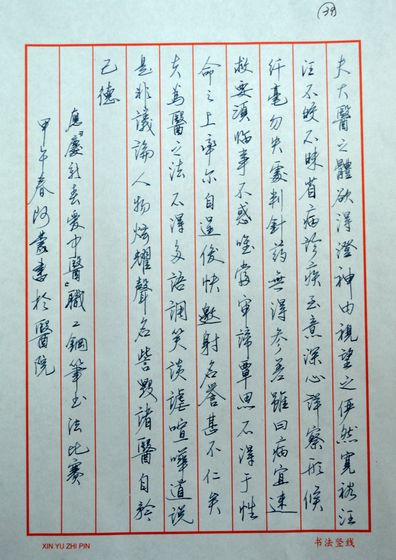 (39)
夫大醫之體欲得澄神内視望之俨然寬裕汪
汪不皎不昧省病診疾至意深心詳察形候
纤毫勿失處判針药無得参差雖曰病宜速
救要須临事不惑唯當审諦覃思不得于性
命之上率尔自逞俊快邀射名誉甚不仁矣
夫為醫之法不得多語調笑談謔喧嘩道說
是非議論人物炫耀聲名訾毁諸醫自矜
己德
應"慶 爱中醫"職工鋼筆书法比赛
甲午春 書於醫院
XIN YU ZHI PIN
书法竖线